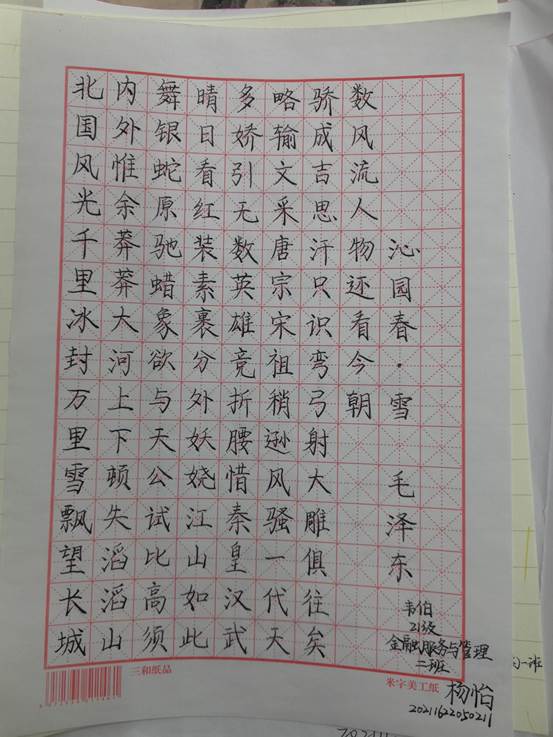 北国风光千里冰封万里雪飘望长城
内外惟余莽莽大河上下顿失滔滔山
舞银蛇原驰蜡象欲与天公试比高须
晴日看红装素裹分外妖娆江山如此
多娇引无数英雄竞折腰惜秦皇汉武
略输文采唐宗宋祖稍逊风骚一代天
骄成吉思汗只识弯弓射大雕俱往矣
数风流人物还看今朝
沁园春·雪 毛泽东
韦伯
21级
金融服务与管理
二班
杨怡
20211622050211
三和纸品
米字美工纸